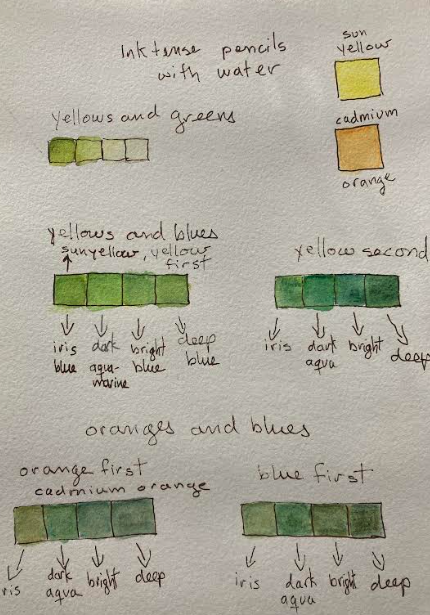 Inktense pencils
with water
sun
yellow
cadmium
orange
yellows and greens
yellows and blues
sunyellow, yellow
first
iris
blue
dark
aqua-
marine
bright
blue
deep
blue
yellow second
iris
dark
aqua
bright
deep
oranges and blues
orange first
cadmium orange
ris
dark
aqua
bright
deep
blue first
iris
dark
aqua
bright
deep